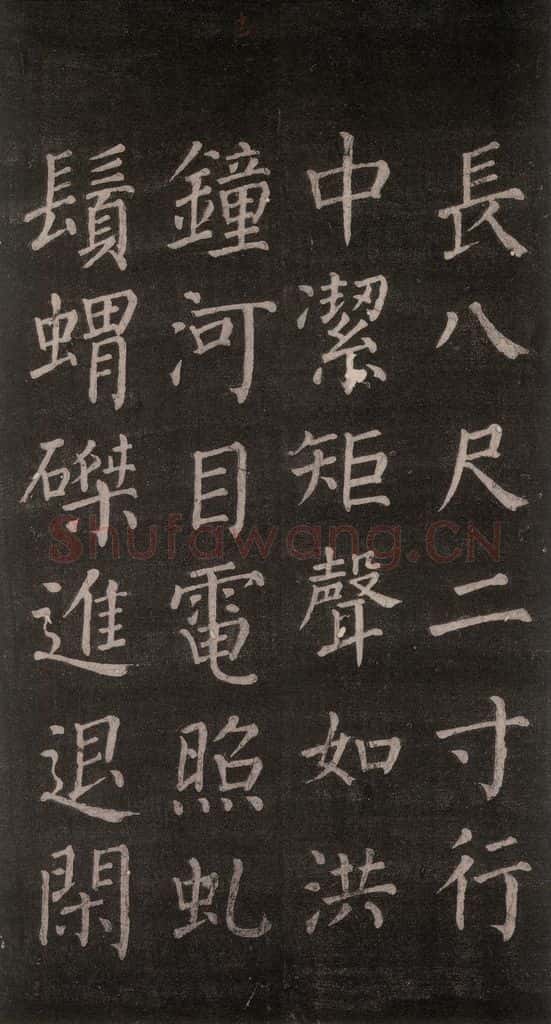 長八尺二寸行
中潔矩聲如洪
鐘河目電照虬
鬚蝟磔進退閑
Shufawang.CN